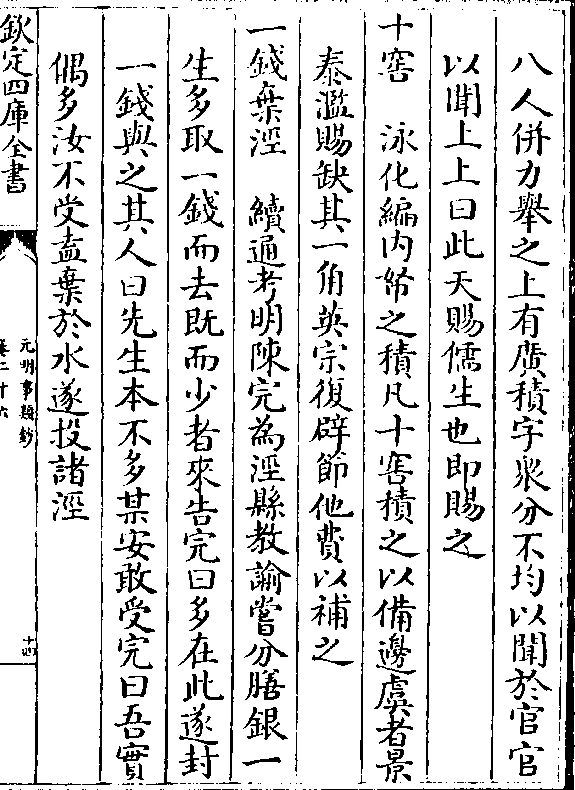 八人併力舉之上有廣積字衆分不均以聞於官官
以聞上上曰此天賜儒生也即賜之
十窖　泳化編内帑之積凡十窖積之以備邊虞者景
泰濫賜缺其一角英宗復辟節他費以補之
一錢棄涇　續通考明陳完為涇縣教諭嘗分膳銀一
生多取一錢而去既而少者來告完曰多在此遂封
一錢與之其人曰先生本不多某安敢受完曰吾實
偶多汝不受盍棄於水遂投諸涇
欽定四庫全書
元明事類鈔
卷二十六
十四